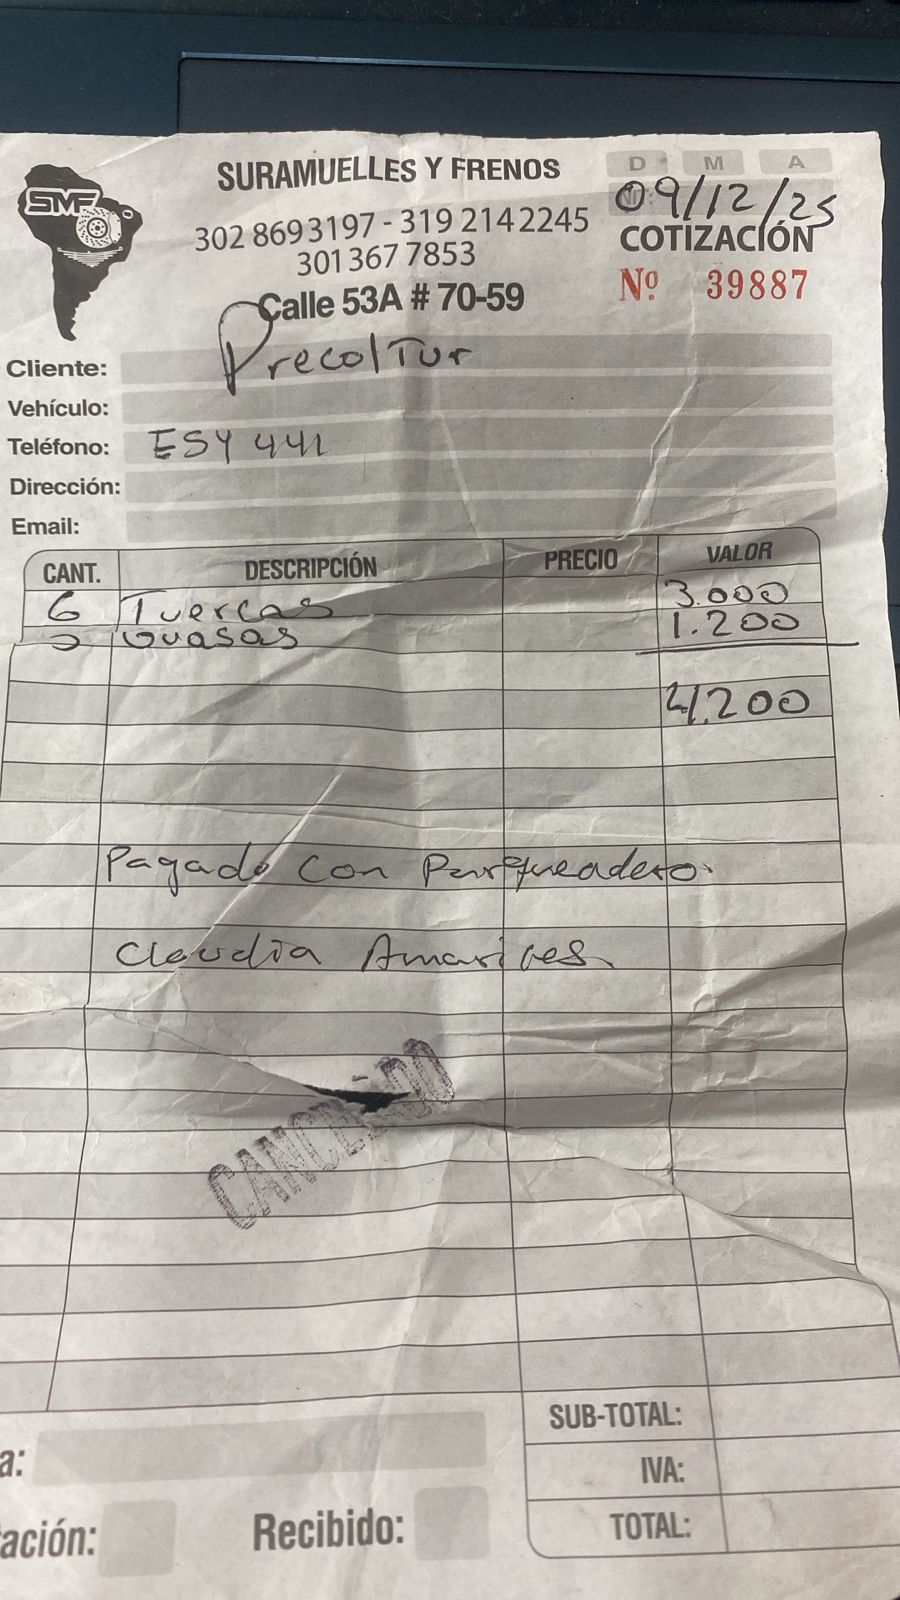 SMF
SURAMUELLES Y FRENOS
302 8693197 - 319 2142245
301 367 7853
Calle 53A # 70-59
D M A
09/12/25
COTIZACIÓN
Nº 39887
Cliente: Precoltur
Vehículo:
Teléfono: ESY 441
Dirección:
Email:
CANT. DESCRIPCIÓN PRECIO VALOR
6 Tuercas 3.000
Guasas 1.200
4.200
Pagado con Parqueadero.
Claudia
CANCELADO
SUB-TOTAL:
a:
IVA:
ación: Recibido:
TOTAL: